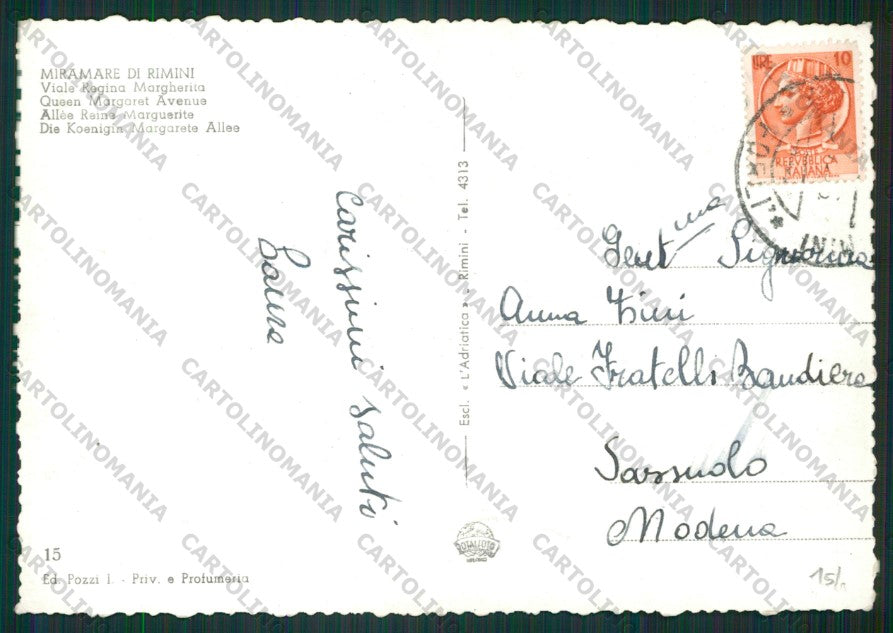 MIRAMARE DI RIMINI
Viale Regina Margherita
Queen Margaret Avenue
Allèe Reine Marguerite
Die Koenigin Margarete Allee
Carissimi saluti
Laura
Escl. « L'Adriatica » - Rimini - Tel. 4313
LIRE 10
REPVBBLICA
ITALIANA
Gent.ma Signorina
Anna Zini
Viale Fratelli Bandiera
Sassuolo
Modena
15
Ed. Pozzi I. - Priv. e Profumeria
15/.
CARTOLINOMANIA